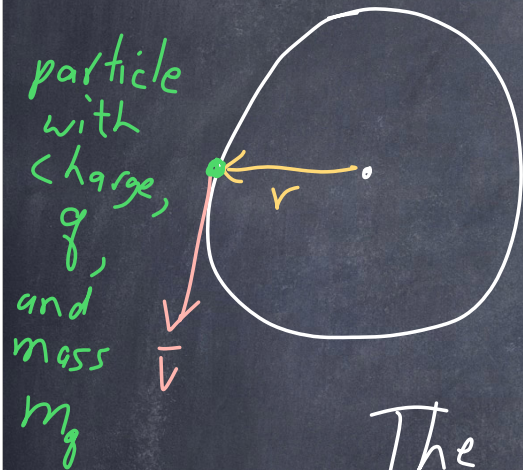 particle
with
charge,
q,
and
mass
m_q
r
v̄
The